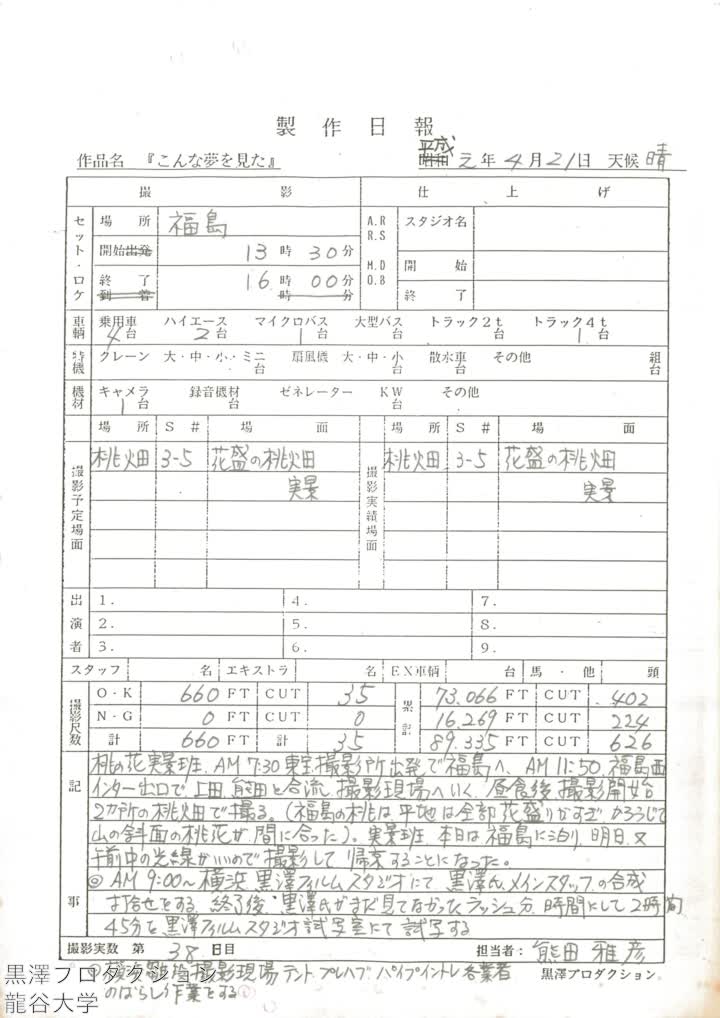 製作日報
作品名 『こんな夢を見た』 昭和 平成 元年4月21日 天候 晴
撮影 仕上げ
セット・ロケ 場所 福島 A.R R.S スタジオ名
開始出発 13時30分 M.D O.B 開始
終了到着 16時00分 時分 終了
車輌 乗用車 ハイエース マイクロバス 大型バス トラック2t トラック4t
4台 2台 1台 台 台 1台
特機 クレーン 大・中・小・ミニ 扇風機 大・中・小 散水車 その他 組
台 台 台 台
機材 キャメラ 録音機材 ゼネレーター KW その他
1台 台 台
場所 S# 場面 場所 S# 場面
撮影予定場面 桃畑 3-5 花盛の桃畑 撮影実績場面 桃畑 3-5 花盛の桃畑
実景 実景
出演者 1. 4. 7.
2. 5. 8.
3. 6. 9.
スタッフ 名 エキストラ 名 EX車輌 台 馬・他 頭
撮影尺数 O・K 660 FT CUT 35 累記 73.066 FT CUT 402
N・G 0 FT CUT 0 16.269 FT CUT 224
計 660 FT 計 35 89.335 FT CUT 626
記事 桃の花実景班、AM 7:30 東宝撮影所出発で福島へ、AM 11:50、福島西
インター出口で上田、熊田と合流、撮影現場へいく、昼食後 撮影開始
2カ所の桃畑で撮る。(福島の桃は、平地は全部 花盛りがすぎ かろうじて
山の斜面の桃花が、間に合った)。実景班、本日は福島に泊り、明日、又
午前中の光線がいいので撮影して 帰京することになった。
◎ AM 9:00~ 横浜、黒澤フィルムスタジオにて、黒澤氏、メインスタッフの合成
打合せをする、終了後、黒澤氏がまだ見てなかったラッシュ分、時間にして2時間
45分を黒澤フィルムスタジオ試写室にて 試写する
撮影実数 第 38 日目 担当者: 熊田 雅彦
撮影現場 テント プレハブ パイプイントレ 各業者 黒澤プロダクション
のばらし作業をする
黒澤プロダクション
龍谷大学